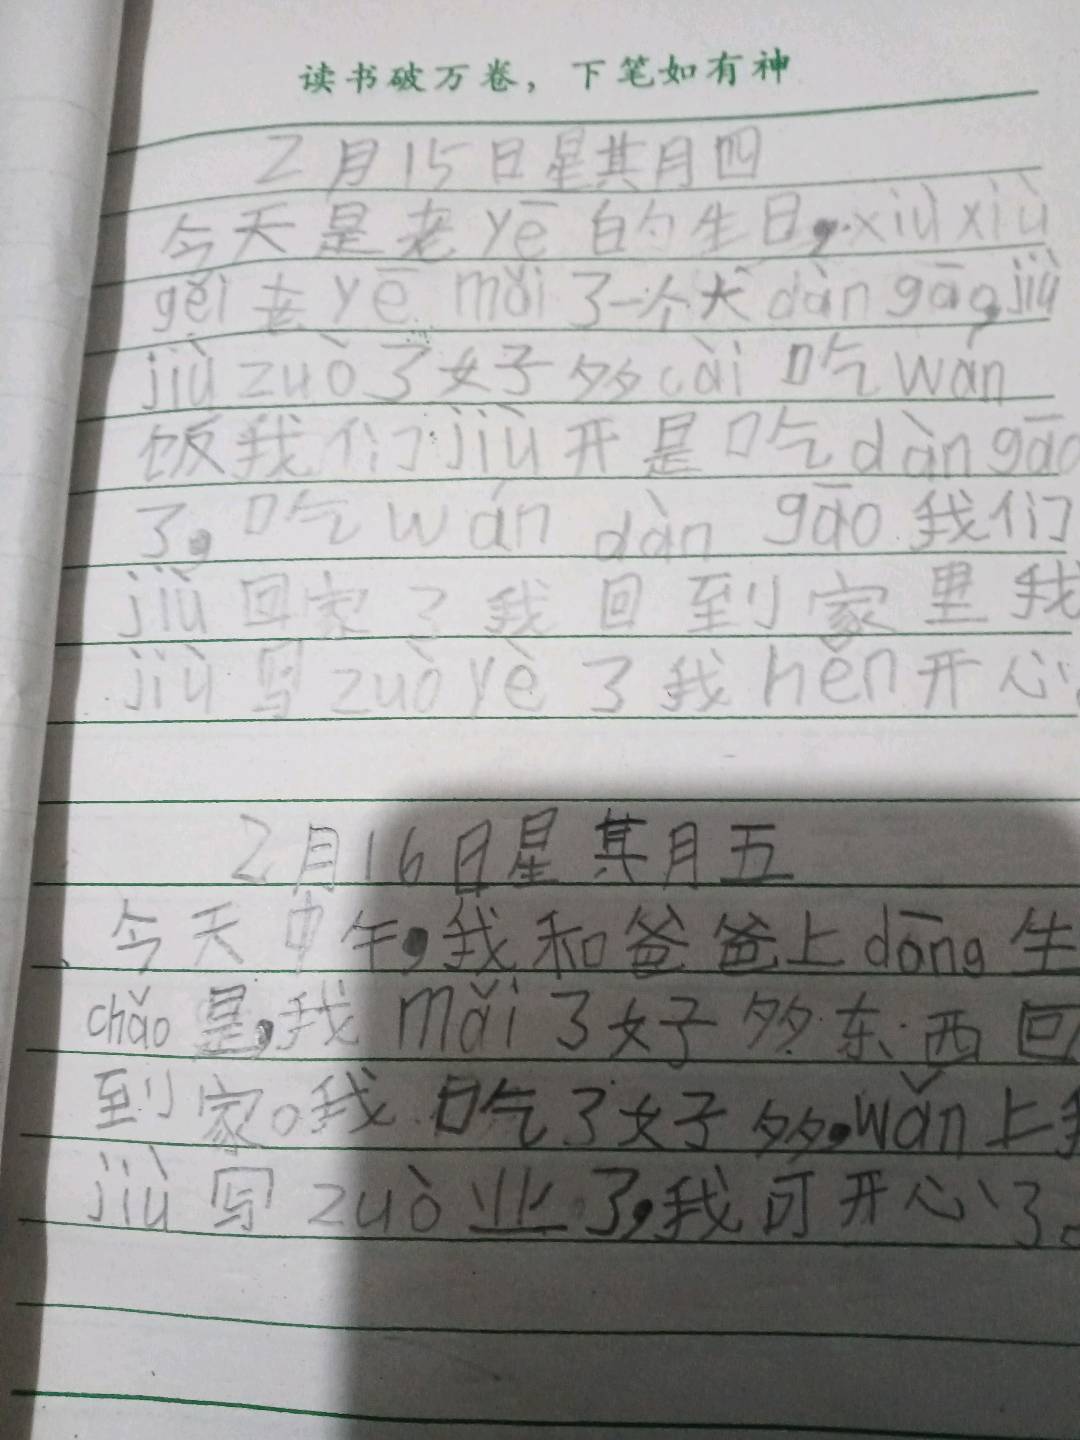 读书破万卷，下笔如有神
2月15日星其月四
今天是老yē的生日,xiùxiù
gěi老yē mǎi了一个大dàngāo,jiù
jiù zuò了女子多cài吃wán
饭我们jiù开是吃dàngāo
了。吃wán dàn gāo我们
jiù回家了我回到家里我
jiù写zuòyè了我hěn开心。
2月16日星其月五
今天中午,我和爸爸上dōng生
chǎo是,我mǎi了女子多东西回
到家。我吃了女子多,wǎn上我
jiù写zuò业了,我可开心了。